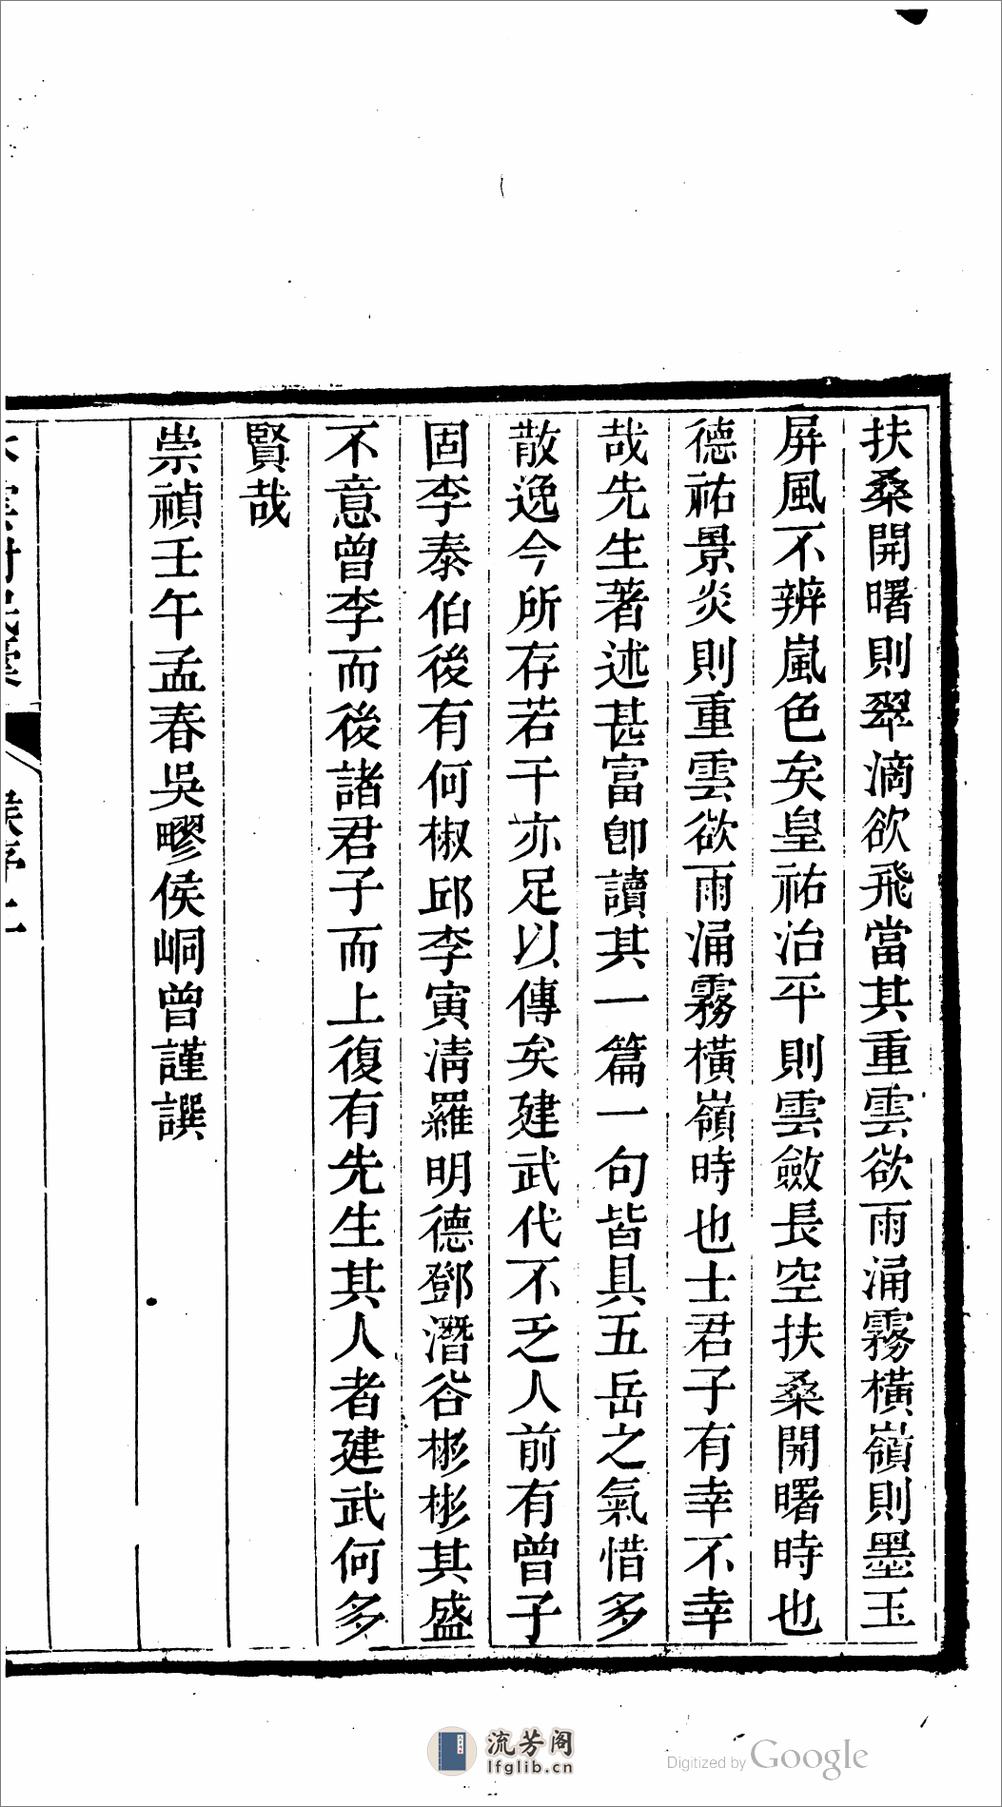 扶桑開曙則翠滴欲飛當其重雲欲雨涌霧橫嶺則墨玉
屏風不辨嵐色矣皇祐治平則雲斂長空扶桑開曙時也
德祐景炎則重雲欲雨涌霧橫嶺時也士君子有幸不幸
哉先生著述甚富卽讀其一篇一句皆具五岳之氣惜多
散逸今所存若干亦足以傳矣建武代不乏人前有曾子
固李泰伯後有何椒邱李寅淸羅明德鄧潛谷彬彬其盛
不意曾李而後諸君子而上復有先生其人者建武何多
賢哉
崇禎壬午孟春吳疁侯峒曾謹譔
流芳阁
lfglib.cn
Digitized by Google